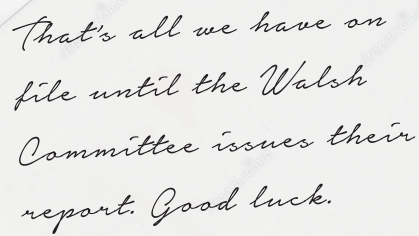 That's all we have on
file until the Walsh
Committee issues their
report. Good luck.